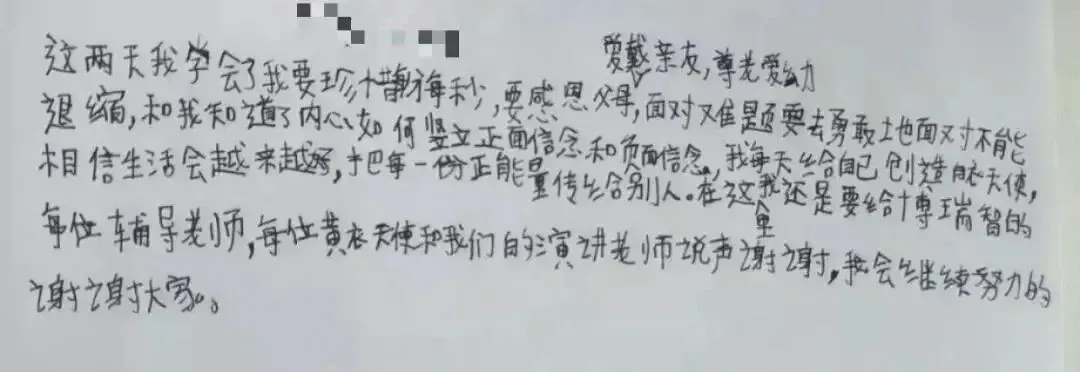 这两天我学会了我要珍惜每秒,要感恩父母,爱戴亲友,尊老爱幼,面对难题要去勇敢地面对不能
退缩,和我知道了内心如何竖立正面信念和负面信念,我每天给自己创造天使,
相信生活会越来越好,把每一份正能量传给别人。在这里我还是要给博瑞智的
每位辅导老师,每位黄衣天使和我们的演讲老师说声谢谢,我会继续努力的
谢谢大家。